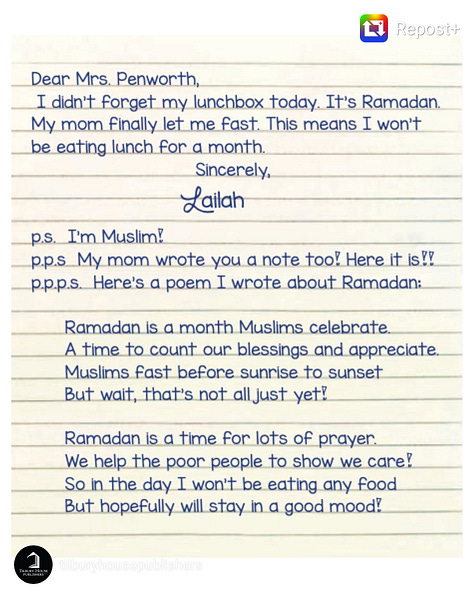 Repost+
Dear Mrs. Penworth,
I didn't forget my lunchbox today. It's Ramadan.
My mom finally let me fast. This means I won't
be eating lunch for a month.
Sincerely,
Lailah
p.s. I'm Muslim!
p.p.s My mom wrote you a note too! Here it is!!
p.p.p.s. Here's a poem I wrote about Ramadan:
Ramadan is a month Muslims celebrate.
A time to count our blessings and appreciate.
Muslims fast before sunrise to sunset
But wait, that's not all just yet!
Ramadan is a time for lots of prayer.
We help the poor people to show we care!
So in the day I won't be eating any food
But hopefully will stay in a good mood!
TILBURY HOUSE
PUBLISHERS
tilburyhousepublishers